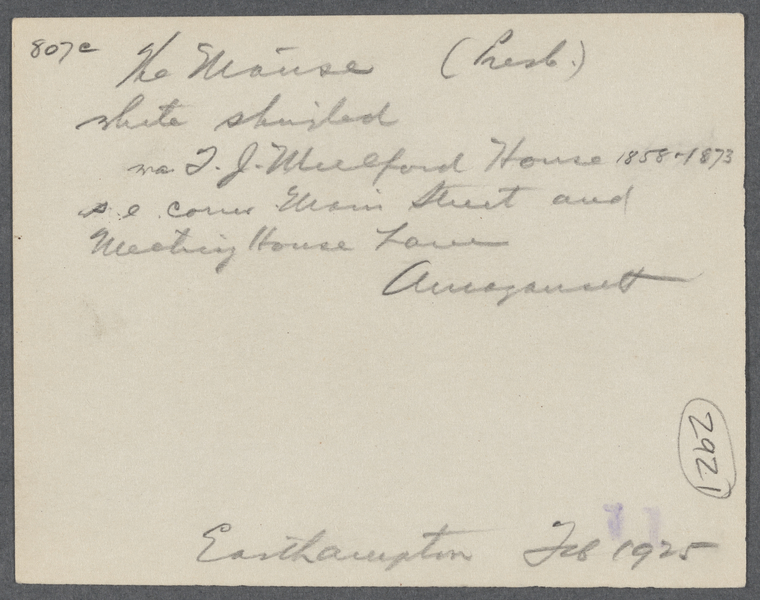 807c The Manse (Presb.)
white shingled
was T. J. Mulford House 1858-1873
s e corner Main Street and
Meeting House Lane
Amagansett
2921
Easthampton Feb 1925